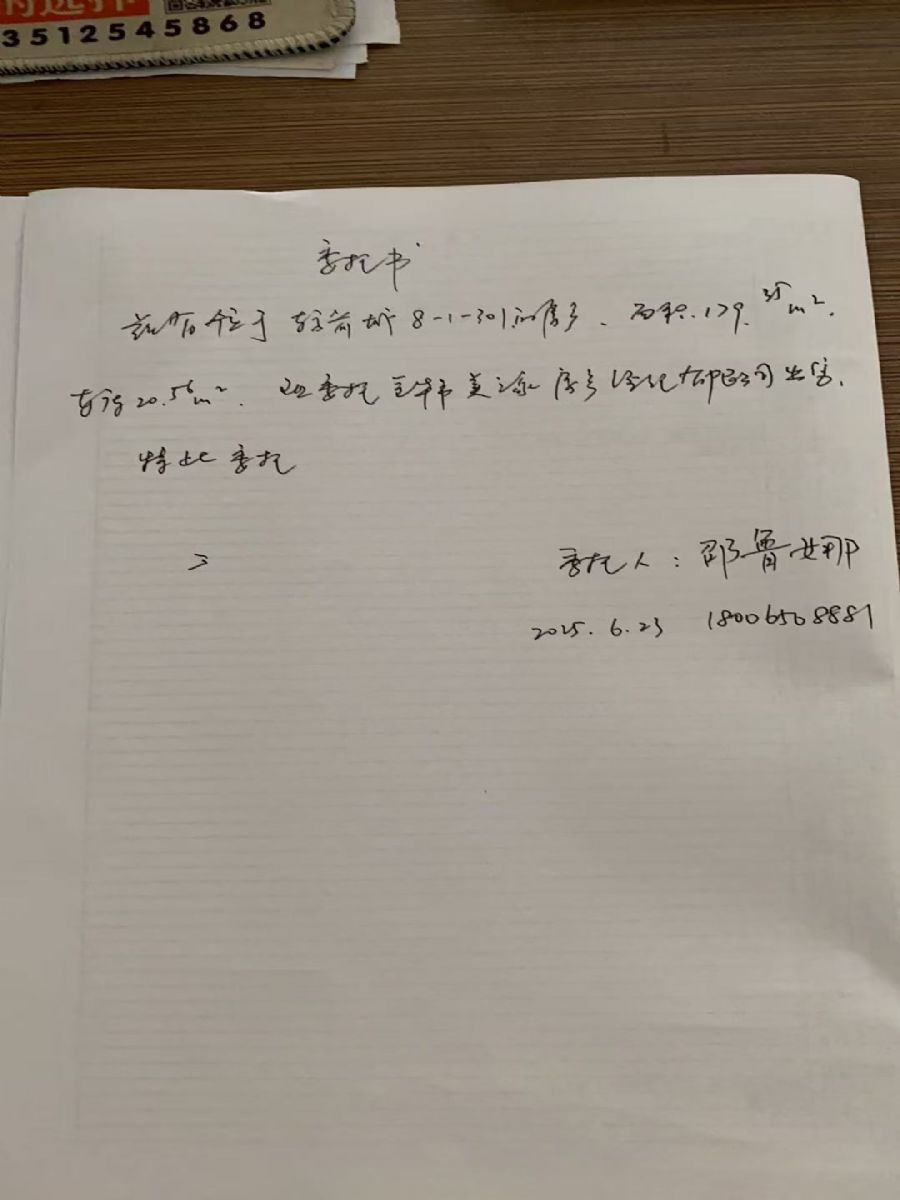 3512545868
委托书
兹有位于 城 8-1-301的房产、面积:179.35m².
20.56m². 现委托 美 房产 公司出售.
特此委托
委托人:邵鲁娜
2025.6.23 18006508881